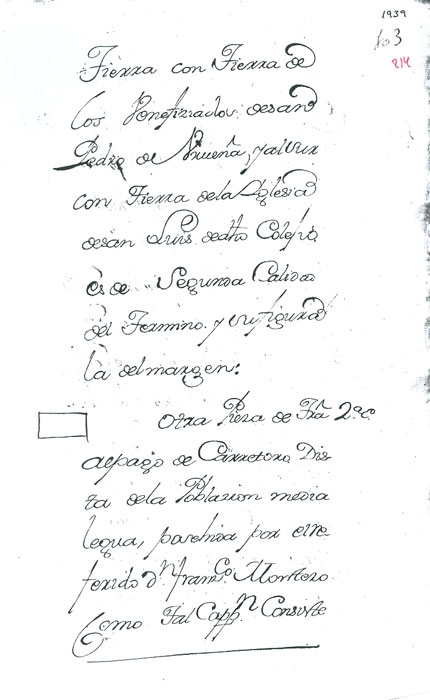 1939
103
214
Tierra con Tierra de
los Venefiziados de san
Pedro de Nrueña, y al sur
con Tierra de la Yglesia
de san Luis de dho Colexio
es de Segunda Calidad
del Termino. y su figura
la del margen:
Otra Pieza de Trã 2.ª C.
al pago de Carretoro, Dis-
ta de la Poblazion media
legua, posehida por el re-
ferido Dn. franco. Montero
Como Tal Cappn. Consiste